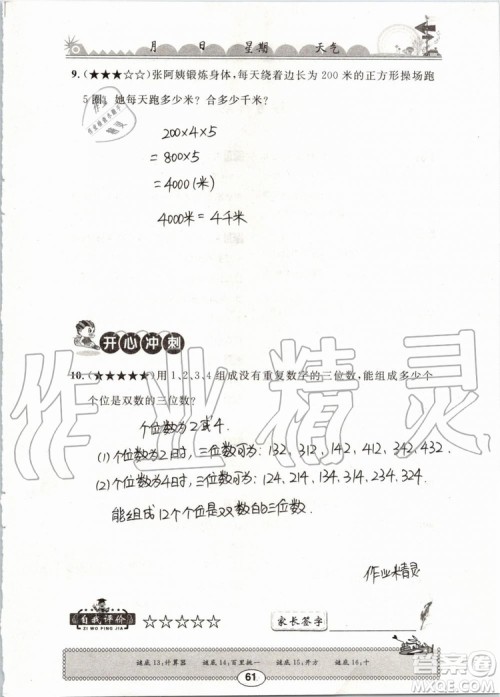 月 日 星期 天气
9.（★★★☆☆）张阿姨锻炼身体，每天绕着边长为 200 米的正方形操场跑
5 圈。她每天跑多少米？合多少千米？
200×4×5
=800×5
=4000(米)
4000米=4千米
开心冲刺
10.（★★★★★）用 1、2、3、4 组成没有重复数字的三位数，能组成多少个
个位是双数的三位数？
个位数为2或4.
(1) 个位数为2时，三位数可为：132, 312, 142, 412, 342, 432.
(2) 个位数为4时，三位数可为：124, 214, 134, 314, 234, 324.
能组成12个个位是双数的三位数.
作业精灵
作业精灵
自我评价 ☆☆☆☆☆ 家长签字
ZI WO PING JIA
谜底 13：计算器 谜底 14：百里挑一 谜底 15：开方 谜底 16：十
61
答案圈